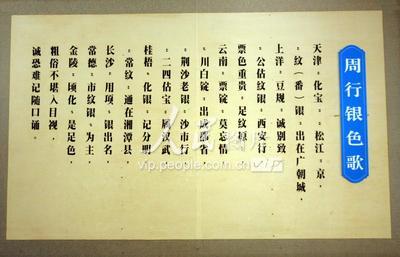 周行银色歌
天津〝化宝〟松江〝京,
〝纹(番)银〟出在广朝城,
上洋〝豆规〟诚别致
〝公估纹银〟西安行
票色重贵,足纹原
云南〝票锭〟莫忘情
〝川白锭〟出成都省,
荆沙老银〝沙市行
〝二四估宝〟属汉武
桂梧〝化银〟记分明
〝常纹〟通在湘潭县,
长沙〝用项〟银出名
常德〝市纹银〟为主,
金陵〝顷化〟是足色,
粗俗不堪入目视,
诚恐难记随口诵。
vip.people.com.cn